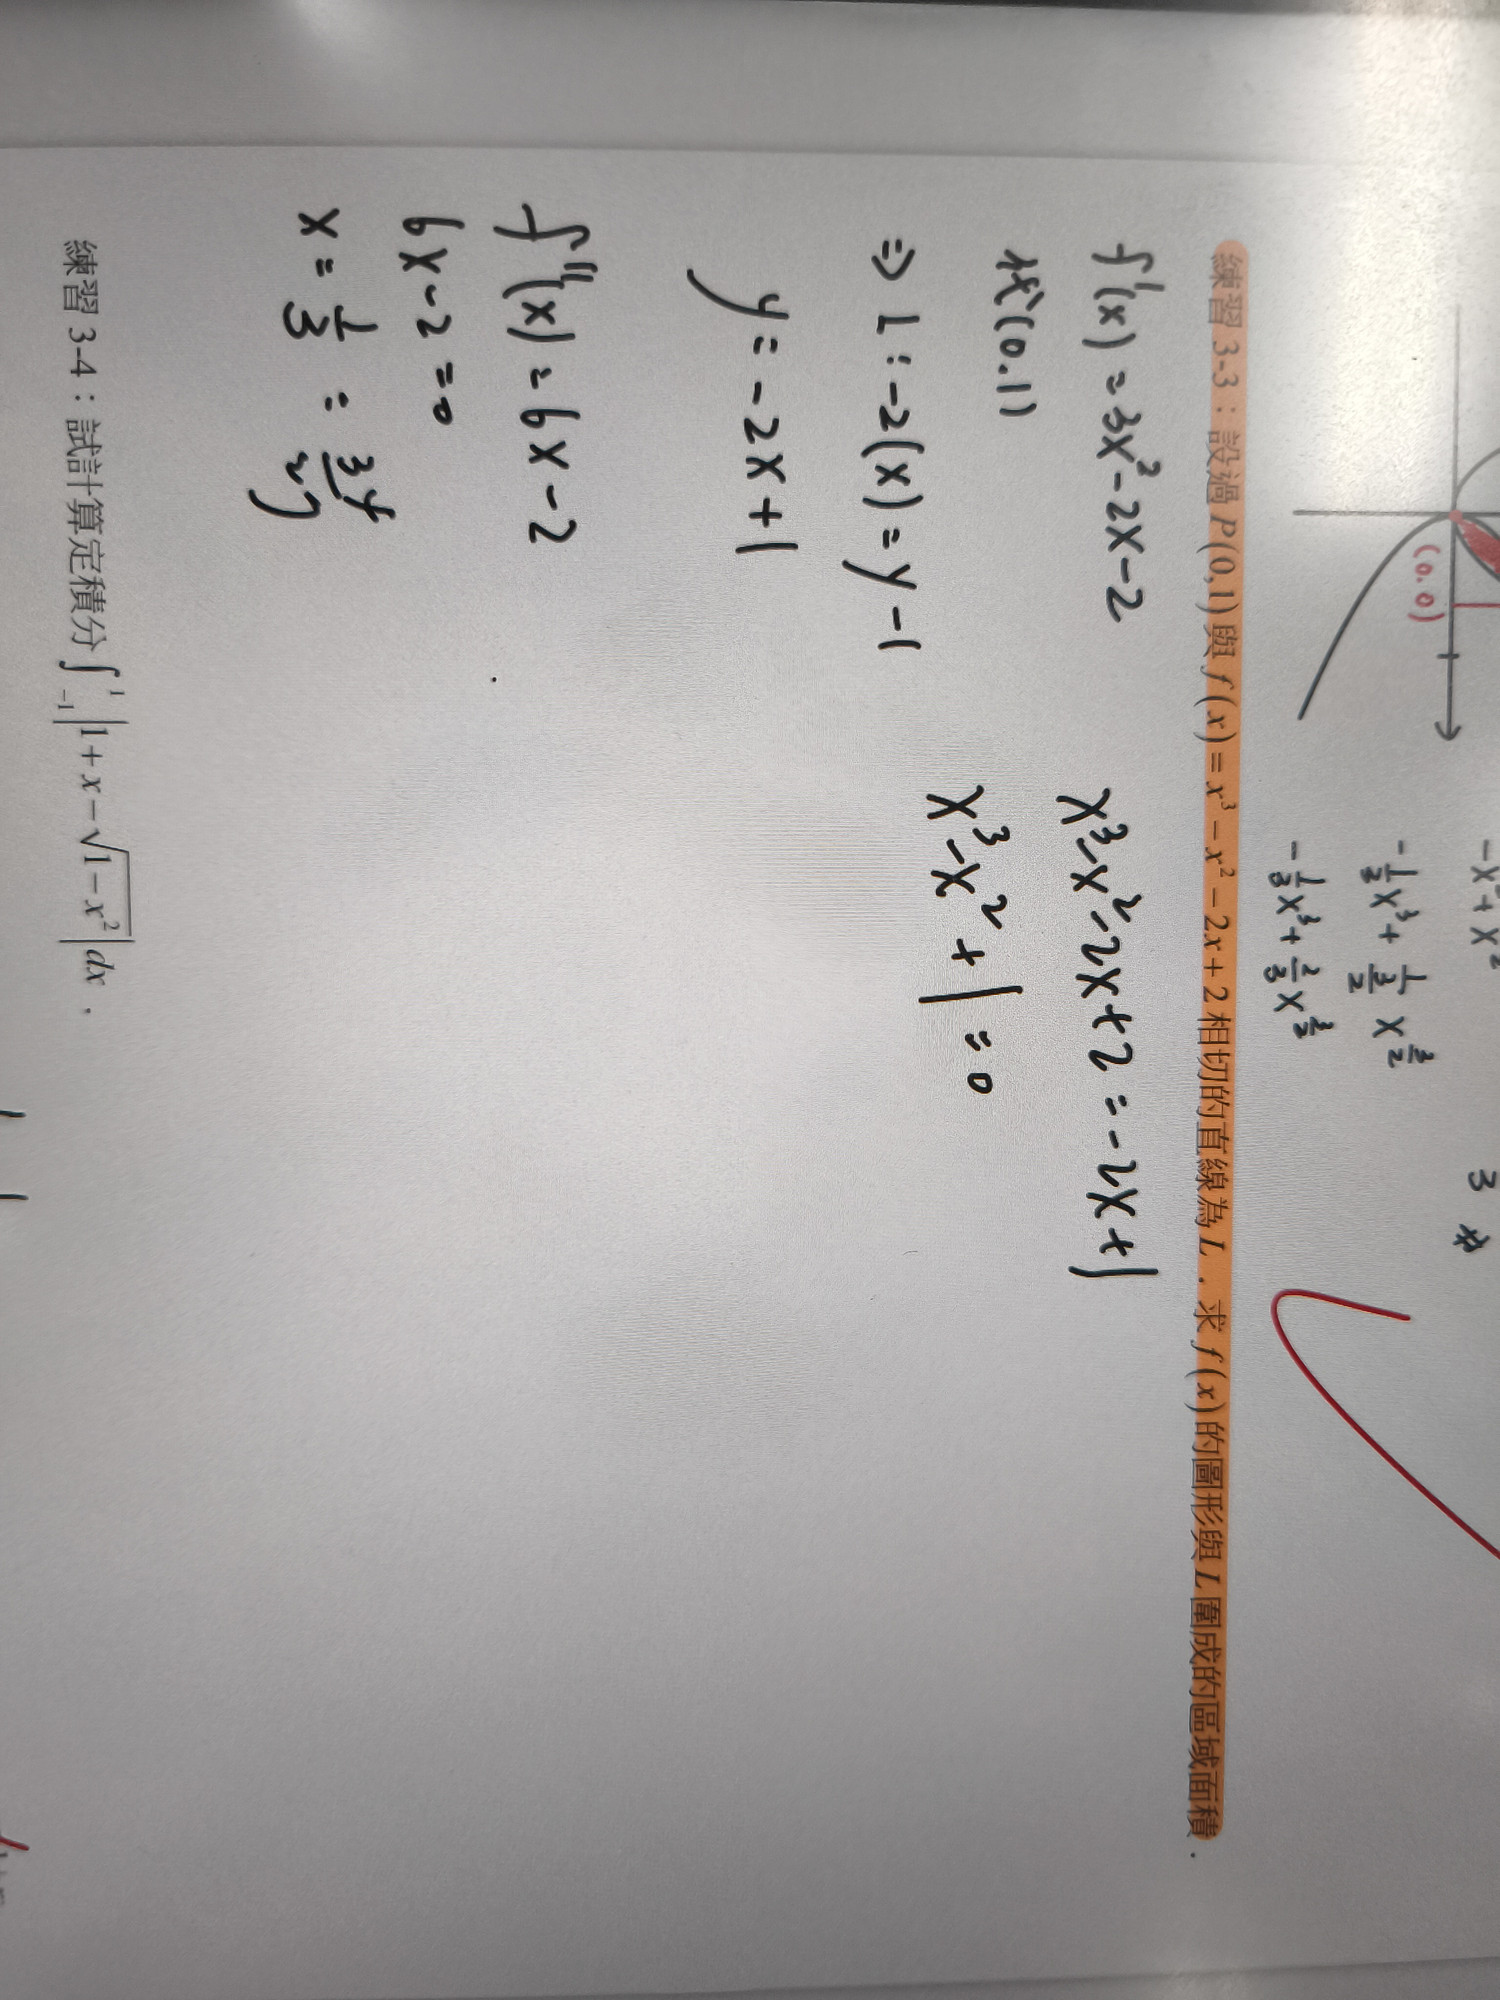 (0.0)
-x²+x²
-1/3x³+1/(3/2)x^(3/2)
-1/3x³+2/3x^(3/2)
3 #
練習 3-3：設過 P(0,1) 與 f(x)=x³-x²-2x+2 相切的直線為 L，求 f(x) 的圖形與 L 圍成的區域面積．
f'(x)=3x²-2x-2
代(0.1)
⇒ L:-2(x)=y-1
y=-2x+1
x³-x²-2x+2=-2x+1
x³-x²+1=0
f''(x)=6x-2
6x-2=0
x=1/3
練習 3-4：試計算定積分 ∫₋₁¹|1+x-√(1-x²)|dx．